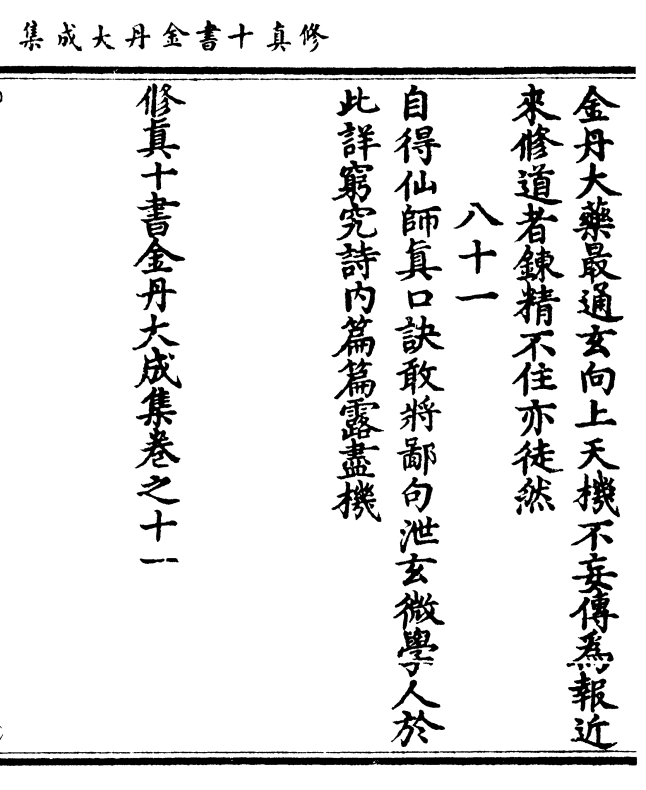 修真十書金丹大成集
金丹大藥最通玄向上天機不妄傳爲報近
來修道者鍊精不住亦徒然
八十一
自得仙師真口訣敢將鄙句泄玄微學人於
此詳窮究詩內篇篇露盡機
修真十書金丹大成集卷之十一